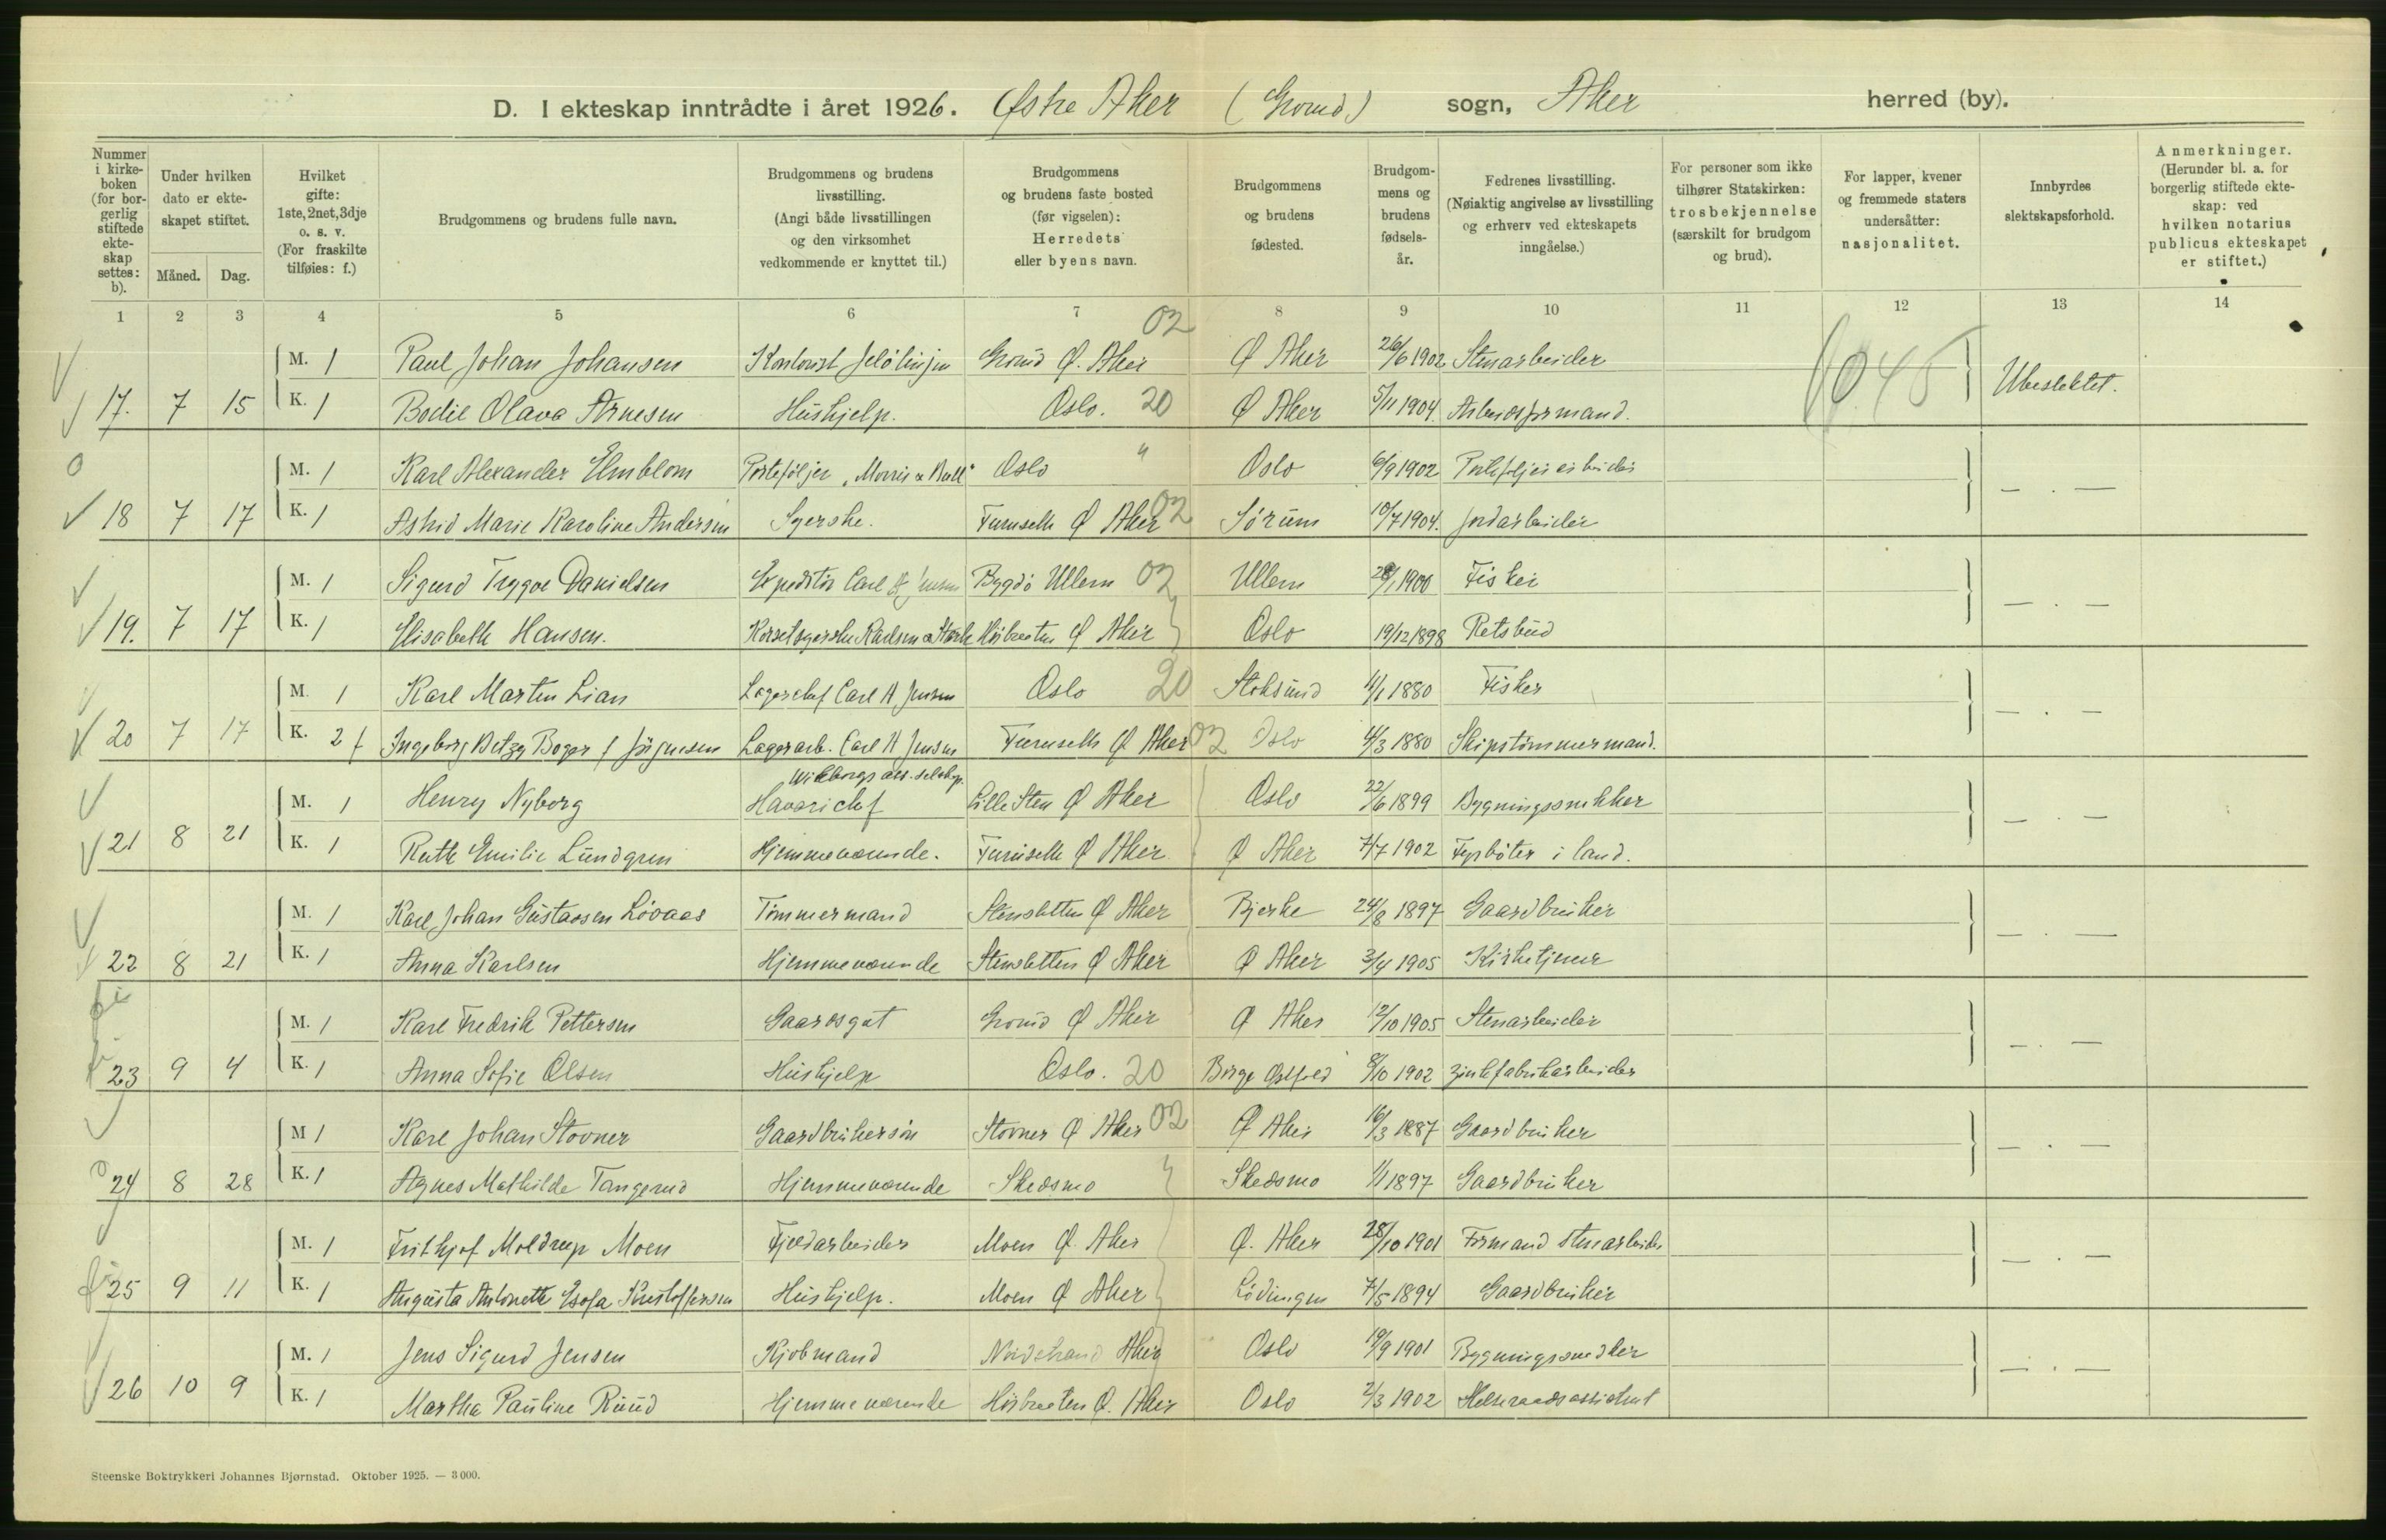 D. I ekteskap inntrådte i året 1926. Østre Aker (Grorud) sogn, Aker herred (by).
Nummer i kirke-boken (for bor-gerlig stiftede ekte-skap settes: b).
Under hvilken dato er ekte-skapet stiftet.
Måned. Dag.
Hvilket gifte: 1ste, 2net, 3dje o. s. v. (For fraskilte tilføies: f.)
Brudgommens og brudens fulle navn.
Brudgommens og brudens livsstilling. (Angi både livsstillingen og den virksomhet vedkommende er knyttet til.)
Brudgommens og brudens faste bosted (før vigselen): Herredets eller byens navn.
Brudgommens og brudens fødested.
Brudgom-mens og brudens fødsels-år.
Fedrenes livsstilling. (Nøiaktig angivelse av livsstilling og erhverv ved ekteskapets inngåelse.)
For personer som ikke tilhører Statskirken: trosbekjennelse (særskilt for brudgom og brud).
For lapper, kvener og fremmede staters undersåtter: nasjonalitet.
Innbyrdes slektskapsforhold.
Anmerkninger. (Herunder bl. a. for borgerlig stiftede ekte-skap: ved hvilken notarius publicus ekteskapet er stiftet.)
1 2 3 4 5 6 7 8 9 10 11 12 13 14
02
M. 1 Paul Johan Johansen Kontorist Grorud Ø. Aker Ø Aker 26/6 1902 Stenarbeider
17. 7 15 K. 1 Bodil Olava Arnesen Hushjelp. Oslo. 20 Ø Aker 5/11 1904. Arbeidsformand. 045 Ubeslektet.
M. 1 Karl Alexander Elmblom Porteføljer "Morris & Bull" Oslo " Oslo 6/9 1902
18 7 17 K. 1 Astrid Marie Karoline Andersen Syerske. Furuseth Ø Aker 02 Sørum 10/7 1904. Jordarbeider — . —
M. 1 Sigurd Trygve Danielsen Expeditør Carl H Jensen Bygdø Ullern 02 Ullern 28/1 1900 Fisker
19. 7 17 K. 1 Elisabeth Hansen. Korsetsyerske Høibraaten Ø Aker Oslo 19/12 1898 Retsbud — . —
M. 1 Karl Martin Lian Lagerchef Carl H Jensen Oslo 20 Stoksund 11/1 1880 Fisker
20 7 17 K. 2 f Ingeborg Betzy Boger f Jørgensen Lagerarb. Carl H Jensen Furuseth Ø Aker 02 Oslo 4/3 1880 Skipstømmermand. — . —
M. 1 Henry Nyborg Wilborgs ass. selskap. Havarichef Lille Sten Ø Aker Oslo 22/6 1899 Bygningssnikker
21 8 21 K. 1 Ruth Emilie Lundgren Hjemmeværende. Furuseth Ø Aker Ø Aker 7/7 1902 Fyrbøter i land. — . —
M. 1 Karl Johan Gustavsen Løvaas Tømmermand Stensletten Ø Aker Bjerke 24/8 1897 Gaardbruker
22 8 21 K. 1 Anna Karlsen Hjemmeværende Stensletten Ø Aker Ø Aker 3/4 1905 Kirketjener — . —
M. 1 Karl Fredrik Pettersen Gaardsgut Grorud Ø Aker Ø Aker 12/10 1905 Stenarbeider
23 9 4 K. 1 Anna Sofie Olsen Hushjelp Oslo. 20 Borge Østfold 8/10 1902 Zinkfabrikarbeider — . —
M 1 Karl Johan Stovner Gaardbrukersøn Stovner Ø Aker 02 Ø Aker 16/3 1887 Gaardbruker
24 8 28 K. 1 Agnes Mathilde Tangerud Hjemmeværende Skedsmo Skedsmo 1/1 1897 Gaardbruker — . —
M. 1 Frithjof Moldrup Moen Fjeldarbeider Moen Ø. Aker Ø. Aker 28/10 1901 Formand Stenarbeider
25 9 11 K. 1 Augusta Antonette Kristoffersen Hushjelp. Moen Ø Aker Lødingen 7/5 1894 Gaardbruker — . —
M. 1 Jens Sigurd Jensen Kjøbmand Nordstrand Aker Oslo 19/9 1901 Bygningssnedker
26 10 9 K. 1 Martha Pauline Ruud Hjemmeværende Høibraaten Ø. Aker Oslo 2/3 1902 Helseraadsassistent — . —
Steenske Boktrykkeri Johannes Bjørnstad. Oktober 1925. — 3 000.